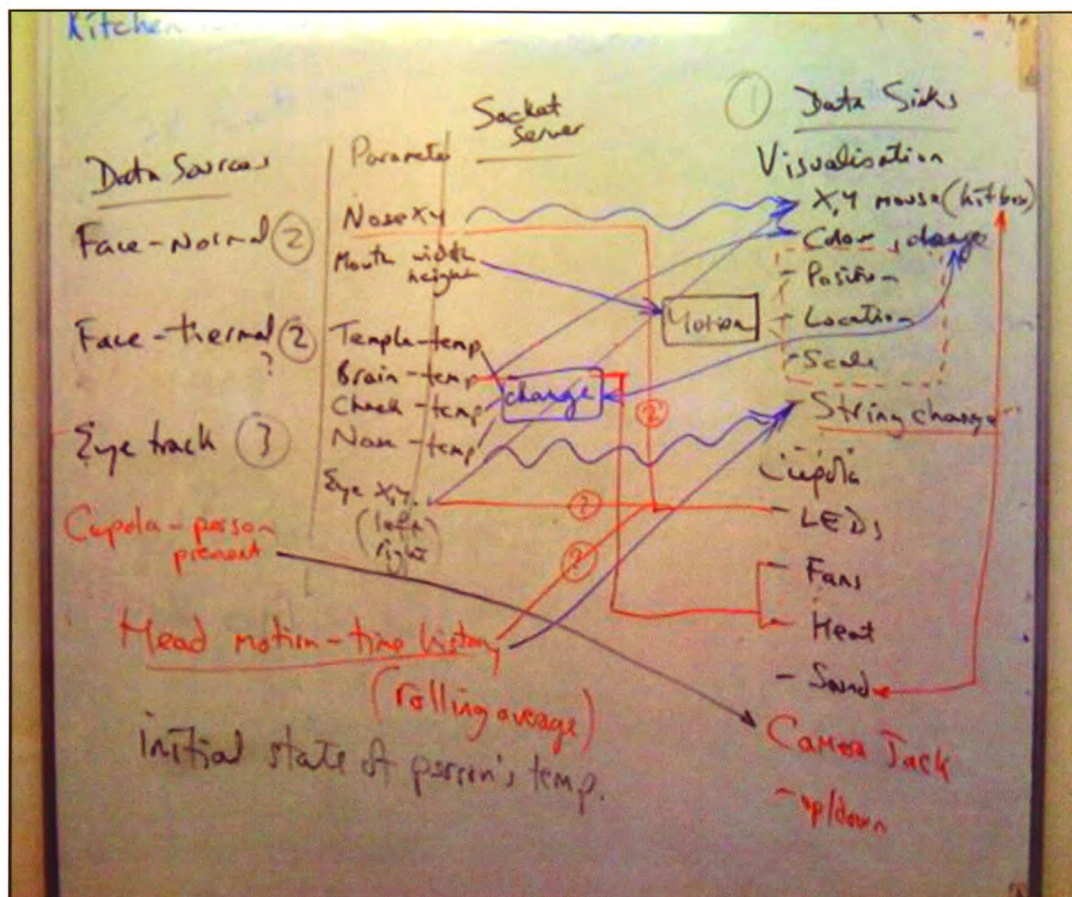 Kitchen
Data Sources
Face - Normal ②
Face - thermal ②
?
Eye track ③
Cupola - person
present
Head motion - time history
(rolling average)
initial state of person's temp.
Parameter
Nose XY
Mouth width
height
Temple - temp
Brain - temp
Cheek - temp
Nose - temp
Eye X,Y.
(left
right)
Socket
Server
change
Motion
②
②
②
① Data Sinks
Visualisation
- X,Y mouse (hitbox)
- Color, change
- Position
- Location
- Scale
- String change
Cupola
- LEDs
- Fans
- Heat
- Sound
Camera Jack
- up/down